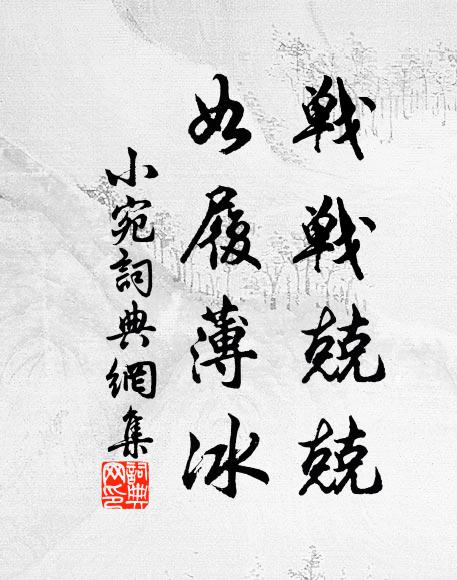 戰戰兢兢
如履薄冰
小宛詞典網集
詞典網印